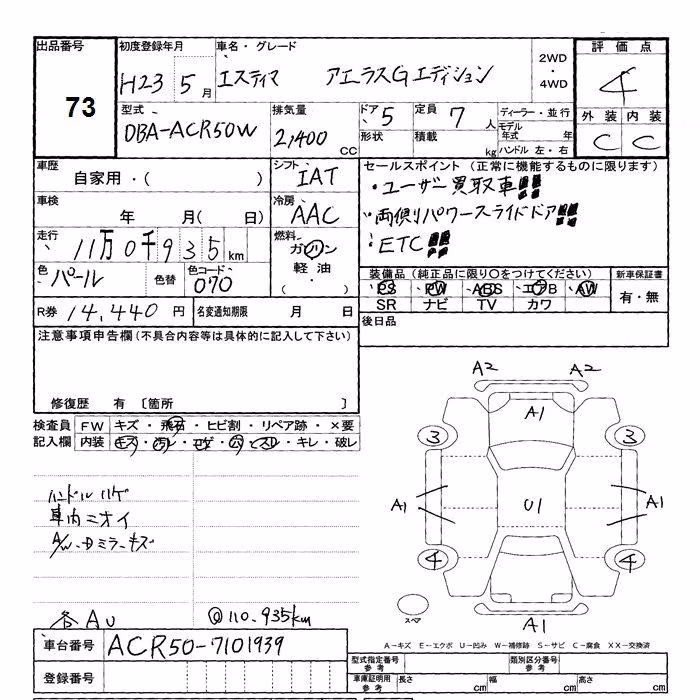 出品番号 初度登録年月 車名・グレード 2WD・4WD 評価点
73 H23 5月 エスティマ アエラスGエディション 4
型式 排気量 ドア 5 定員 7人 ディーラー・並行 外装 内装
DBA-ACR50W 2,400 CC 形状 積載 kg モデル年式 年 C C
ハンドル 左・右
車歴 シフト セールスポイント (正常に機能するものに限ります)
自家用・( ) IAT ・ユーザー買取車!!
車検 冷房 ・両側パワースライドドア!!
年 月( 日) AAC ・ETC!!
走行 燃料
11万0千935km ガソリン
色 パール 色替 色コード 070 軽油・( )
装備品 (純正品に限り○をつけてください) 新車保証書
PS PW ABS エアB AW 有・無
SR ナビ TV カワ
R券 14,440円 名変通知期限 月 日
後日品
注意事項申告欄 (不具合内容等は具体的に記入して下さい)
修復歴 有 〔箇所 〕
検査員 FW キズ・飛石・ヒビ割・リペア跡・×要
記入欄 内装 キズ・汚レ・コゲ・穴・スレ・キレ・破レ
ハンドルハゲ
車内ニオイ
A/W・Dミラーキズ
各AU @110,935km
A2 A2
A1
3 3
A1 U1 A1
4 4
スペア A1
車台番号 ACR50-7101939
A-キズ E-エクボ U-凹み W-補修跡 S-サビ C-腐食 XX-交換済
登録番号
型式指定番号 参考 類別区分番号 参考
車庫証明用 参考 長さ cm 幅 cm 高さ cm